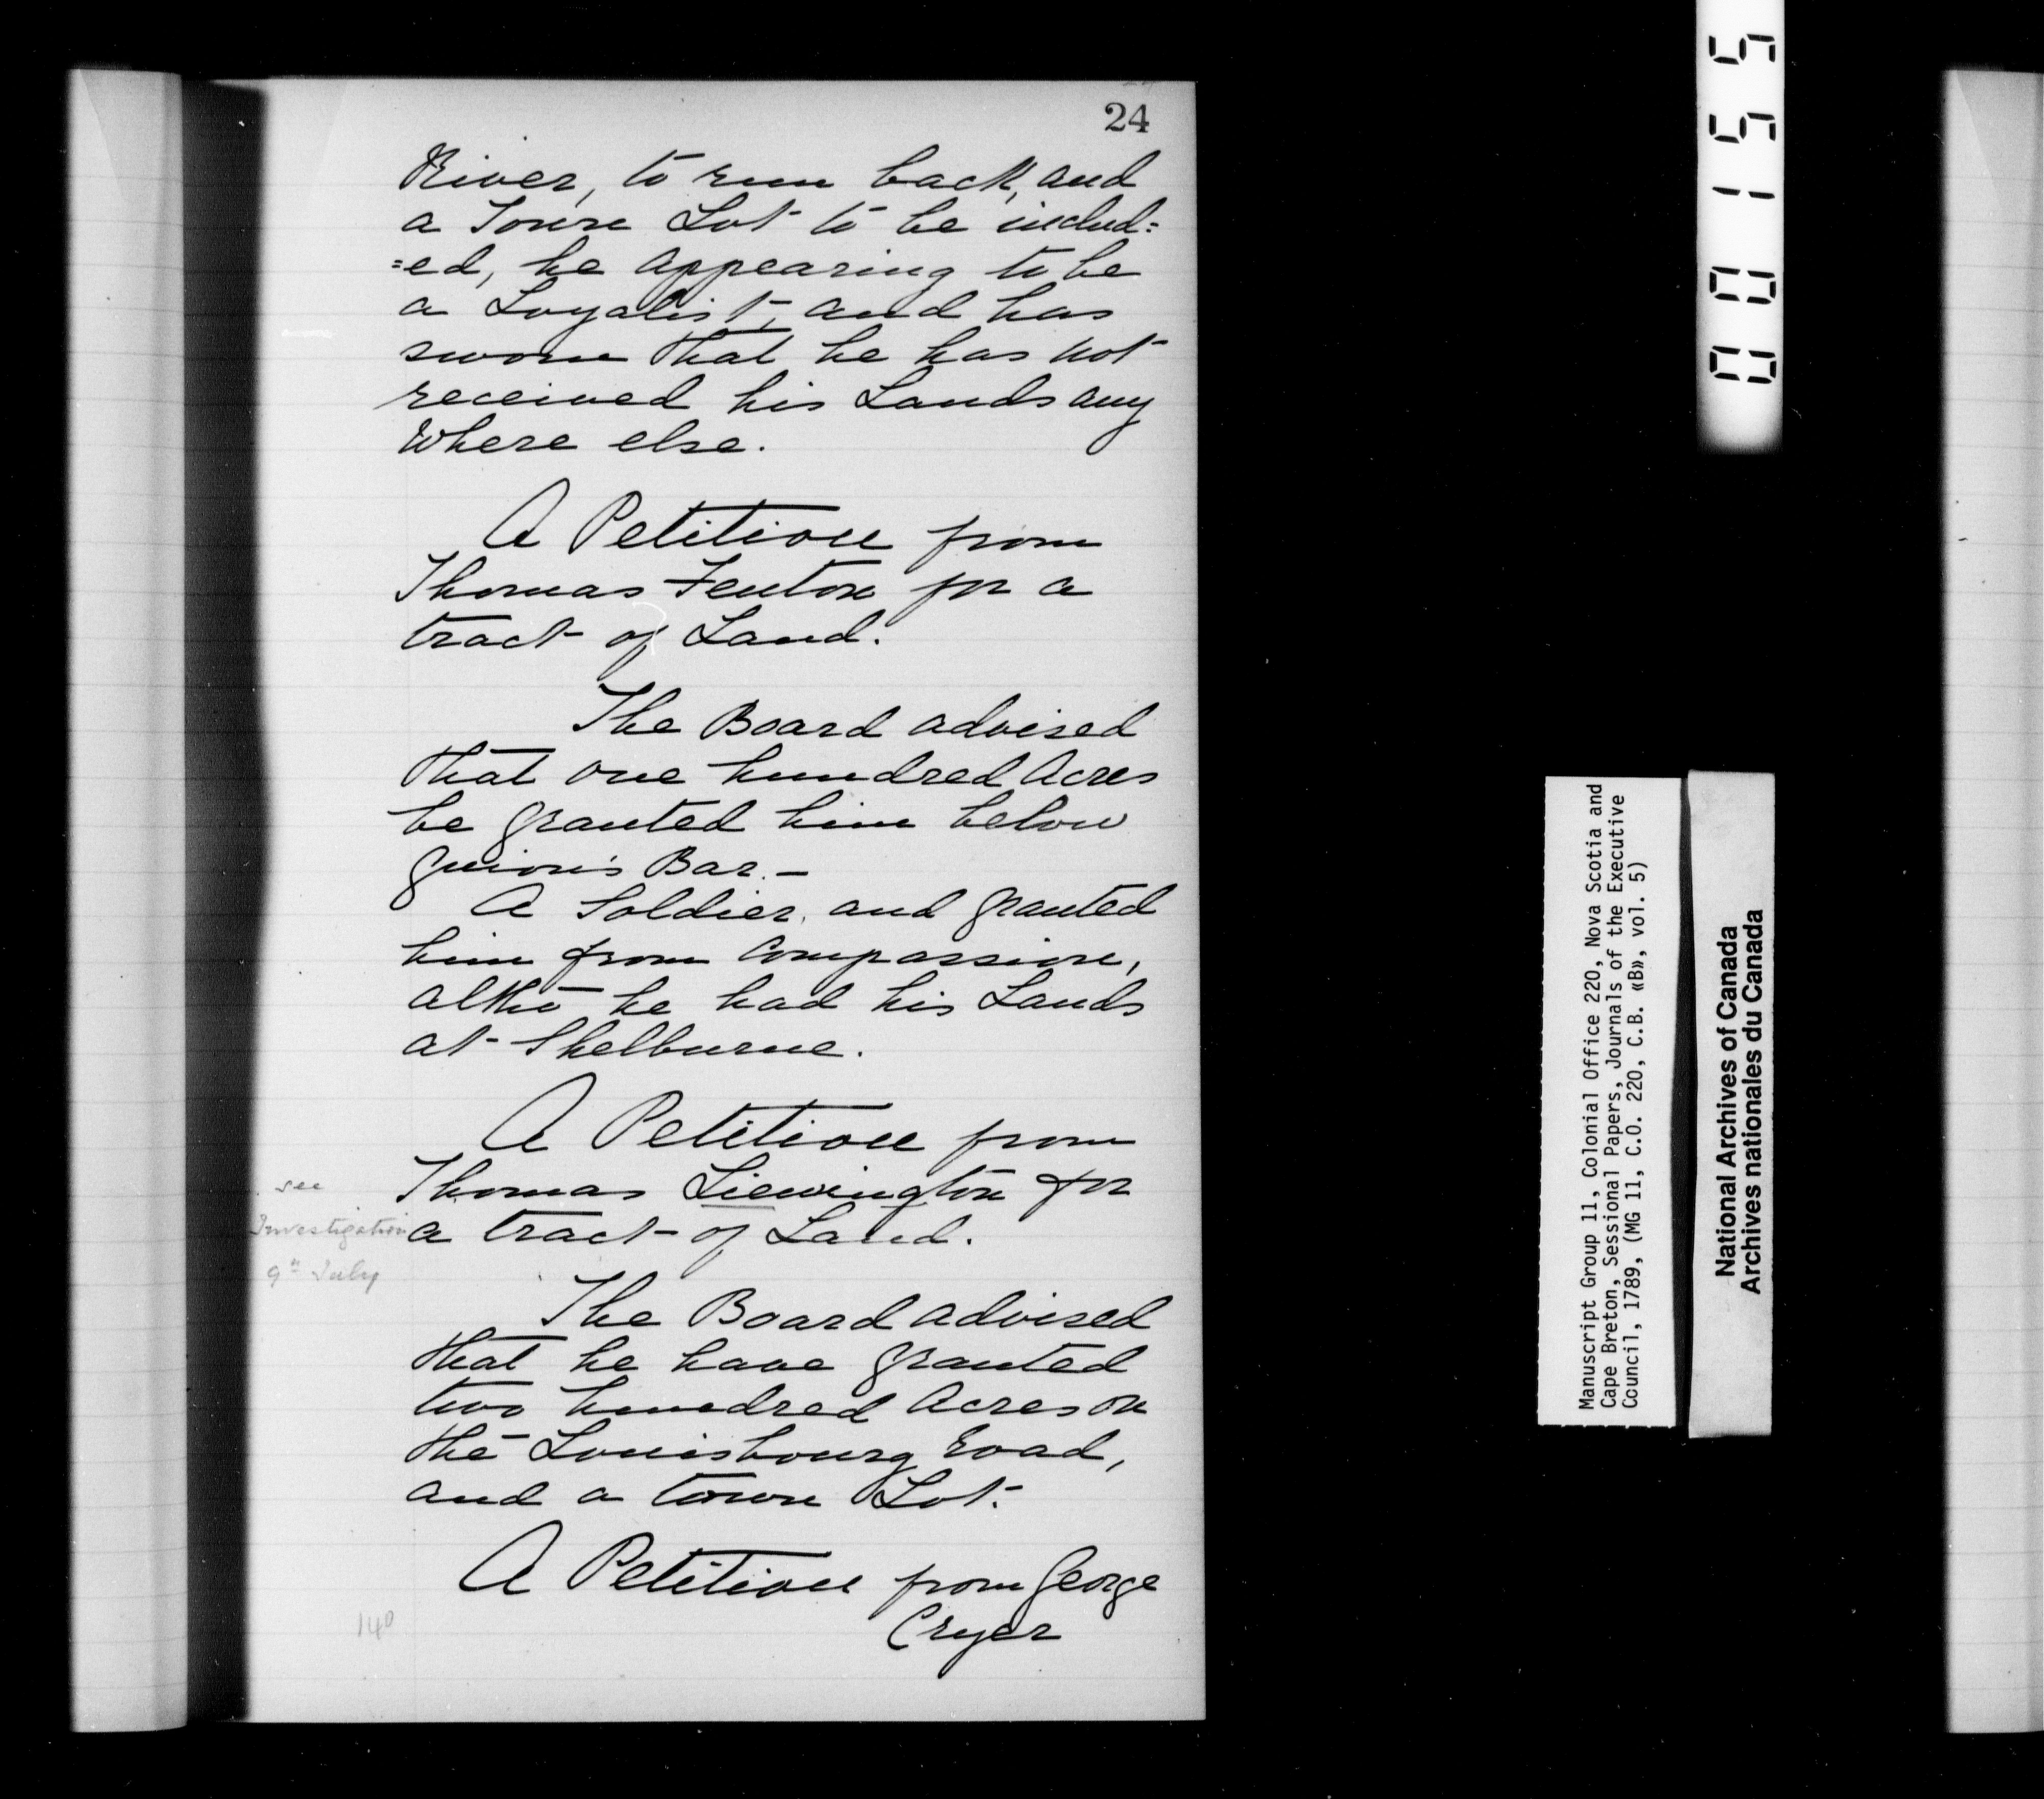 24
River, to run back, and
a Town Lot to be includ=
=ed, he appearing to be
a Loyalist, and has
sworn that he has not
received his Lands any
where else.
A Petition from
Thomas Fenton for a
tract of Land.
The Board advised
that one hundred Acres
be granted him below
Guion's Bar.—
A Soldier, and granted
him from Compassion,
altho' he had his Lands
at Shelburne.
A Petition from
Thomas Liewington for
a tract of Land.
see
Investigation
9th July
The Board advised
that he have granted
two hundred Acres on
the Louisbourg road,
and a town Lot.
A Petition from George
Cryer
140
00155
Manuscript Group 11, Colonial Office 220, Nova Scotia and
Cape Breton, Sessional Papers, Journals of the Executive
Council, 1789, (MG 11, C.O. 220, C.B. «B», vol. 5)
National Archives of Canada
Archives nationales du Canada